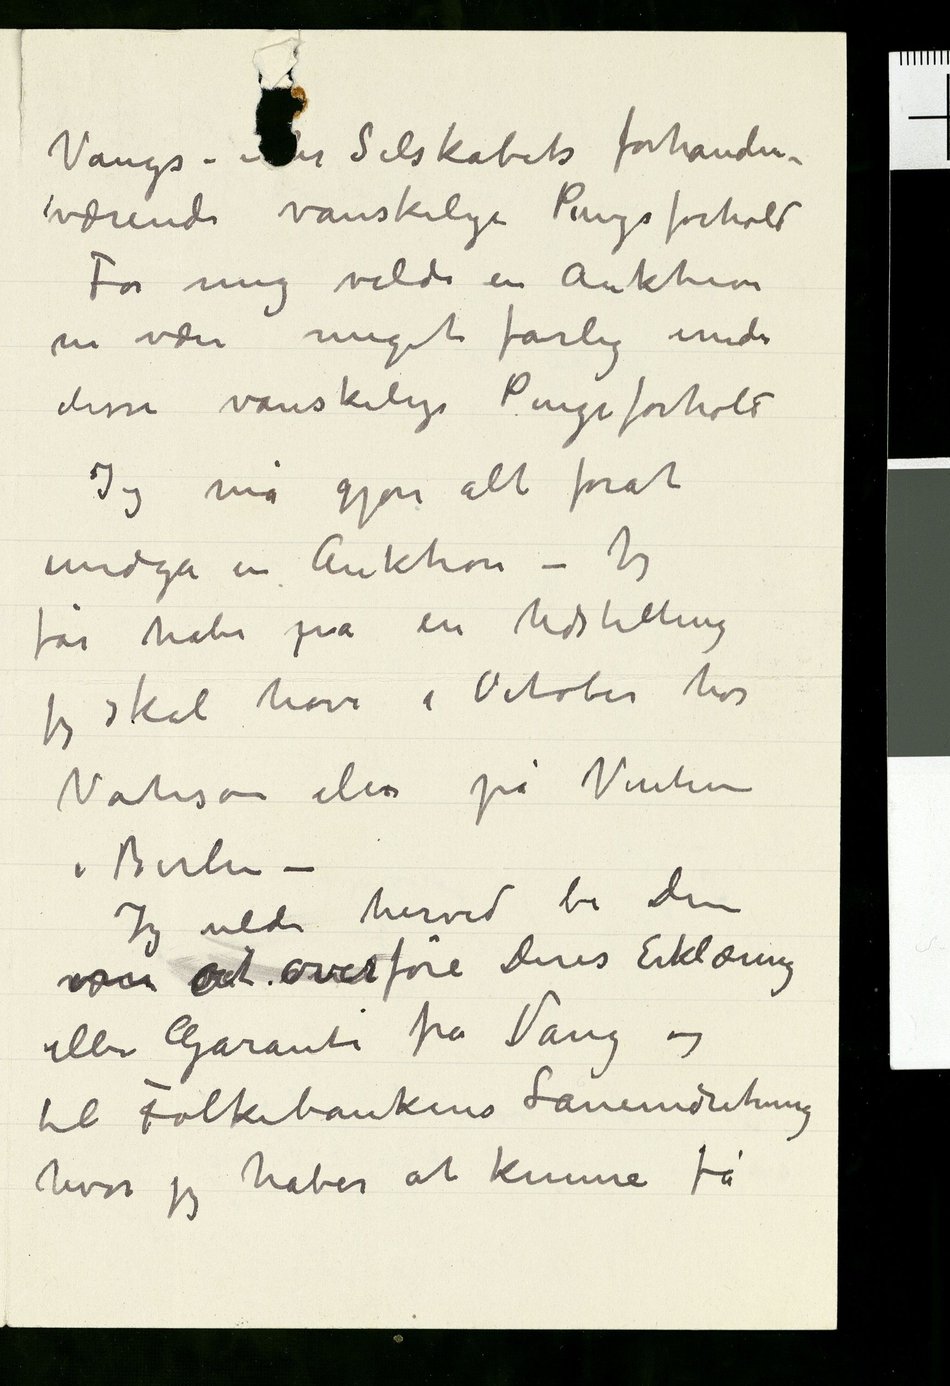 Vangs- eller Selskabets forhanden-
værende vanskelige Pengeforhold
For mig vilde en Auktion
nu være meget farlig under
disse vanskelige Pengeforhold
Jeg må gjøre alt forat
undgå en Auktion – Jeg
får håbe på en Udstilling
jeg skal have i October hos
eller på
i Berlin –
Jeg vilde herved be Dem
at overføre Deres Erklæring
eller Garanti fra Vang og
til Folkebankens Låneindretning
hvor jeg håber at kunne få